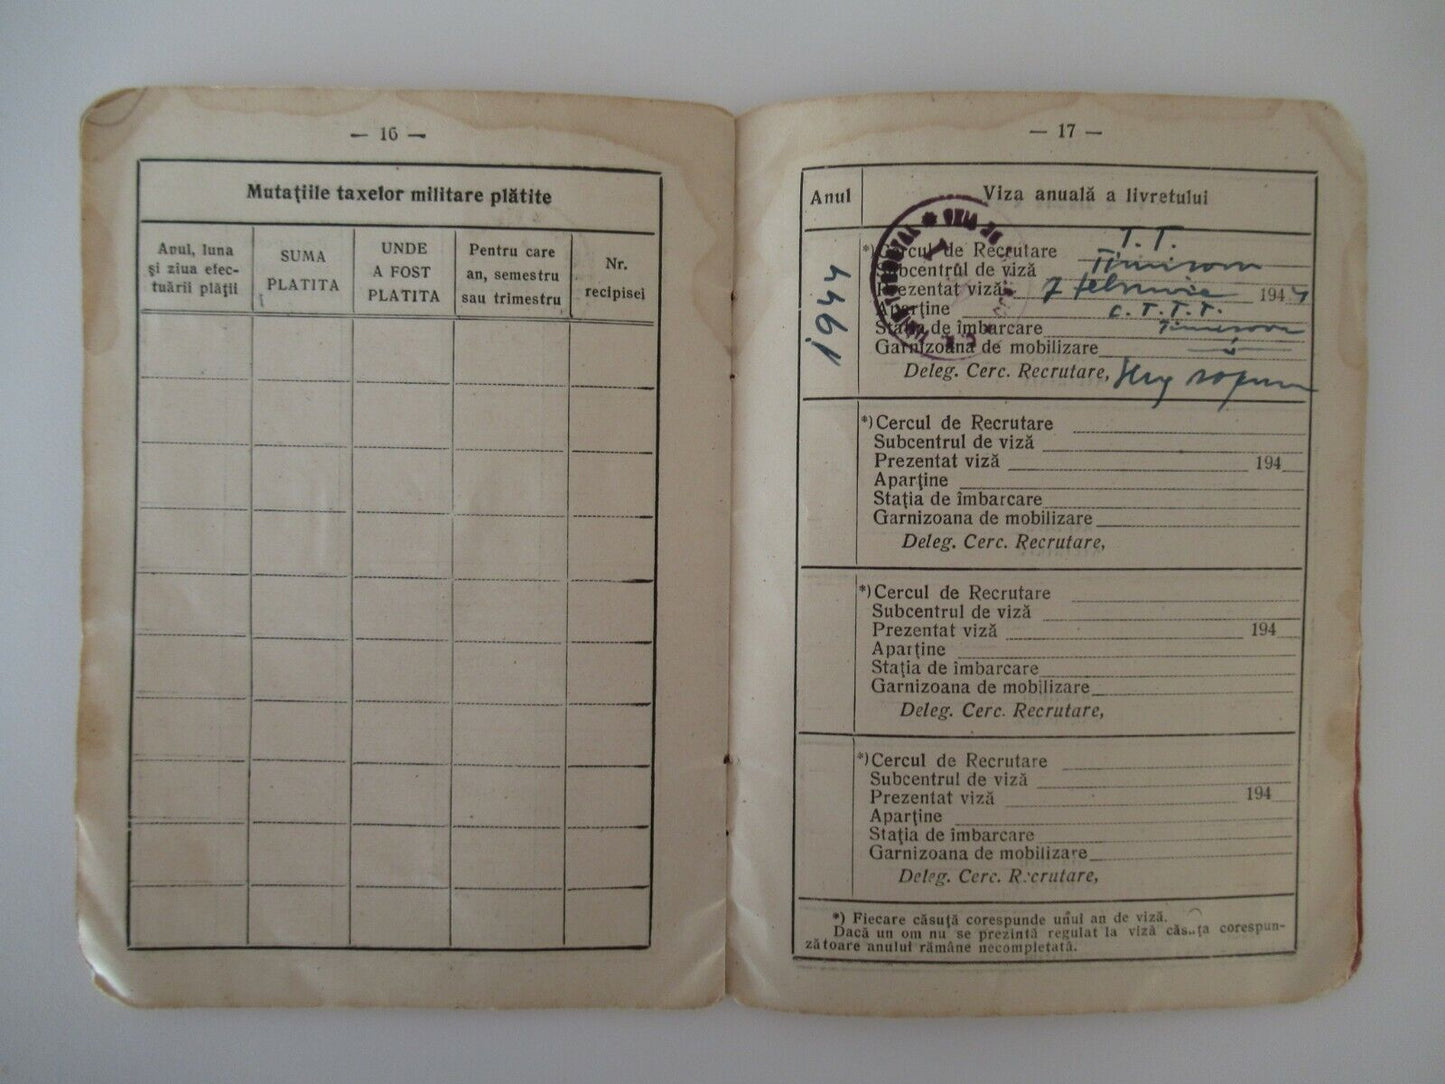 — 16 —
Mutațiile taxelor militare plătite
Anul, luna
și ziua efec-
tuării plății
SUMA
PLATITA
UNDE
A FOST
PLATITA
Pentru care
an, semestru
sau trimestru
Nr.
recipisei
— 17 —
Anul
Viza anuală a livretului
1944
*) Cercul de Recrutare T. T.
Subcentrul de viză Timisoara
Prezentat viză 7 februarie 1944
Aparține C. T. T. T.
Stația de îmbarcare Timisoara
Garnizoana de mobilizare
Deleg. Cerc. Recrutare,
*) Cercul de Recrutare
Subcentrul de viză
Prezentat viză 194
Aparține
Stația de îmbarcare
Garnizoana de mobilizare
Deleg. Cerc. Recrutare,
*) Cercul de Recrutare
Subcentrul de viză
Prezentat viză 194
Aparține
Stația de îmbarcare
Garnizoana de mobilizare
Deleg. Cerc. Recrutare,
*) Cercul de Recrutare
Subcentrul de viză
Prezentat viză 194
Aparține
Stația de îmbarcare
Garnizoana de mobilizare
Deleg. Cerc. Recrutare,
*) Fiecare căsuță corespunde unui an de viză.
Dacă un om nu se prezintă regulat la viză căsuța corespun-
zătoare anului rămâne necompletată.